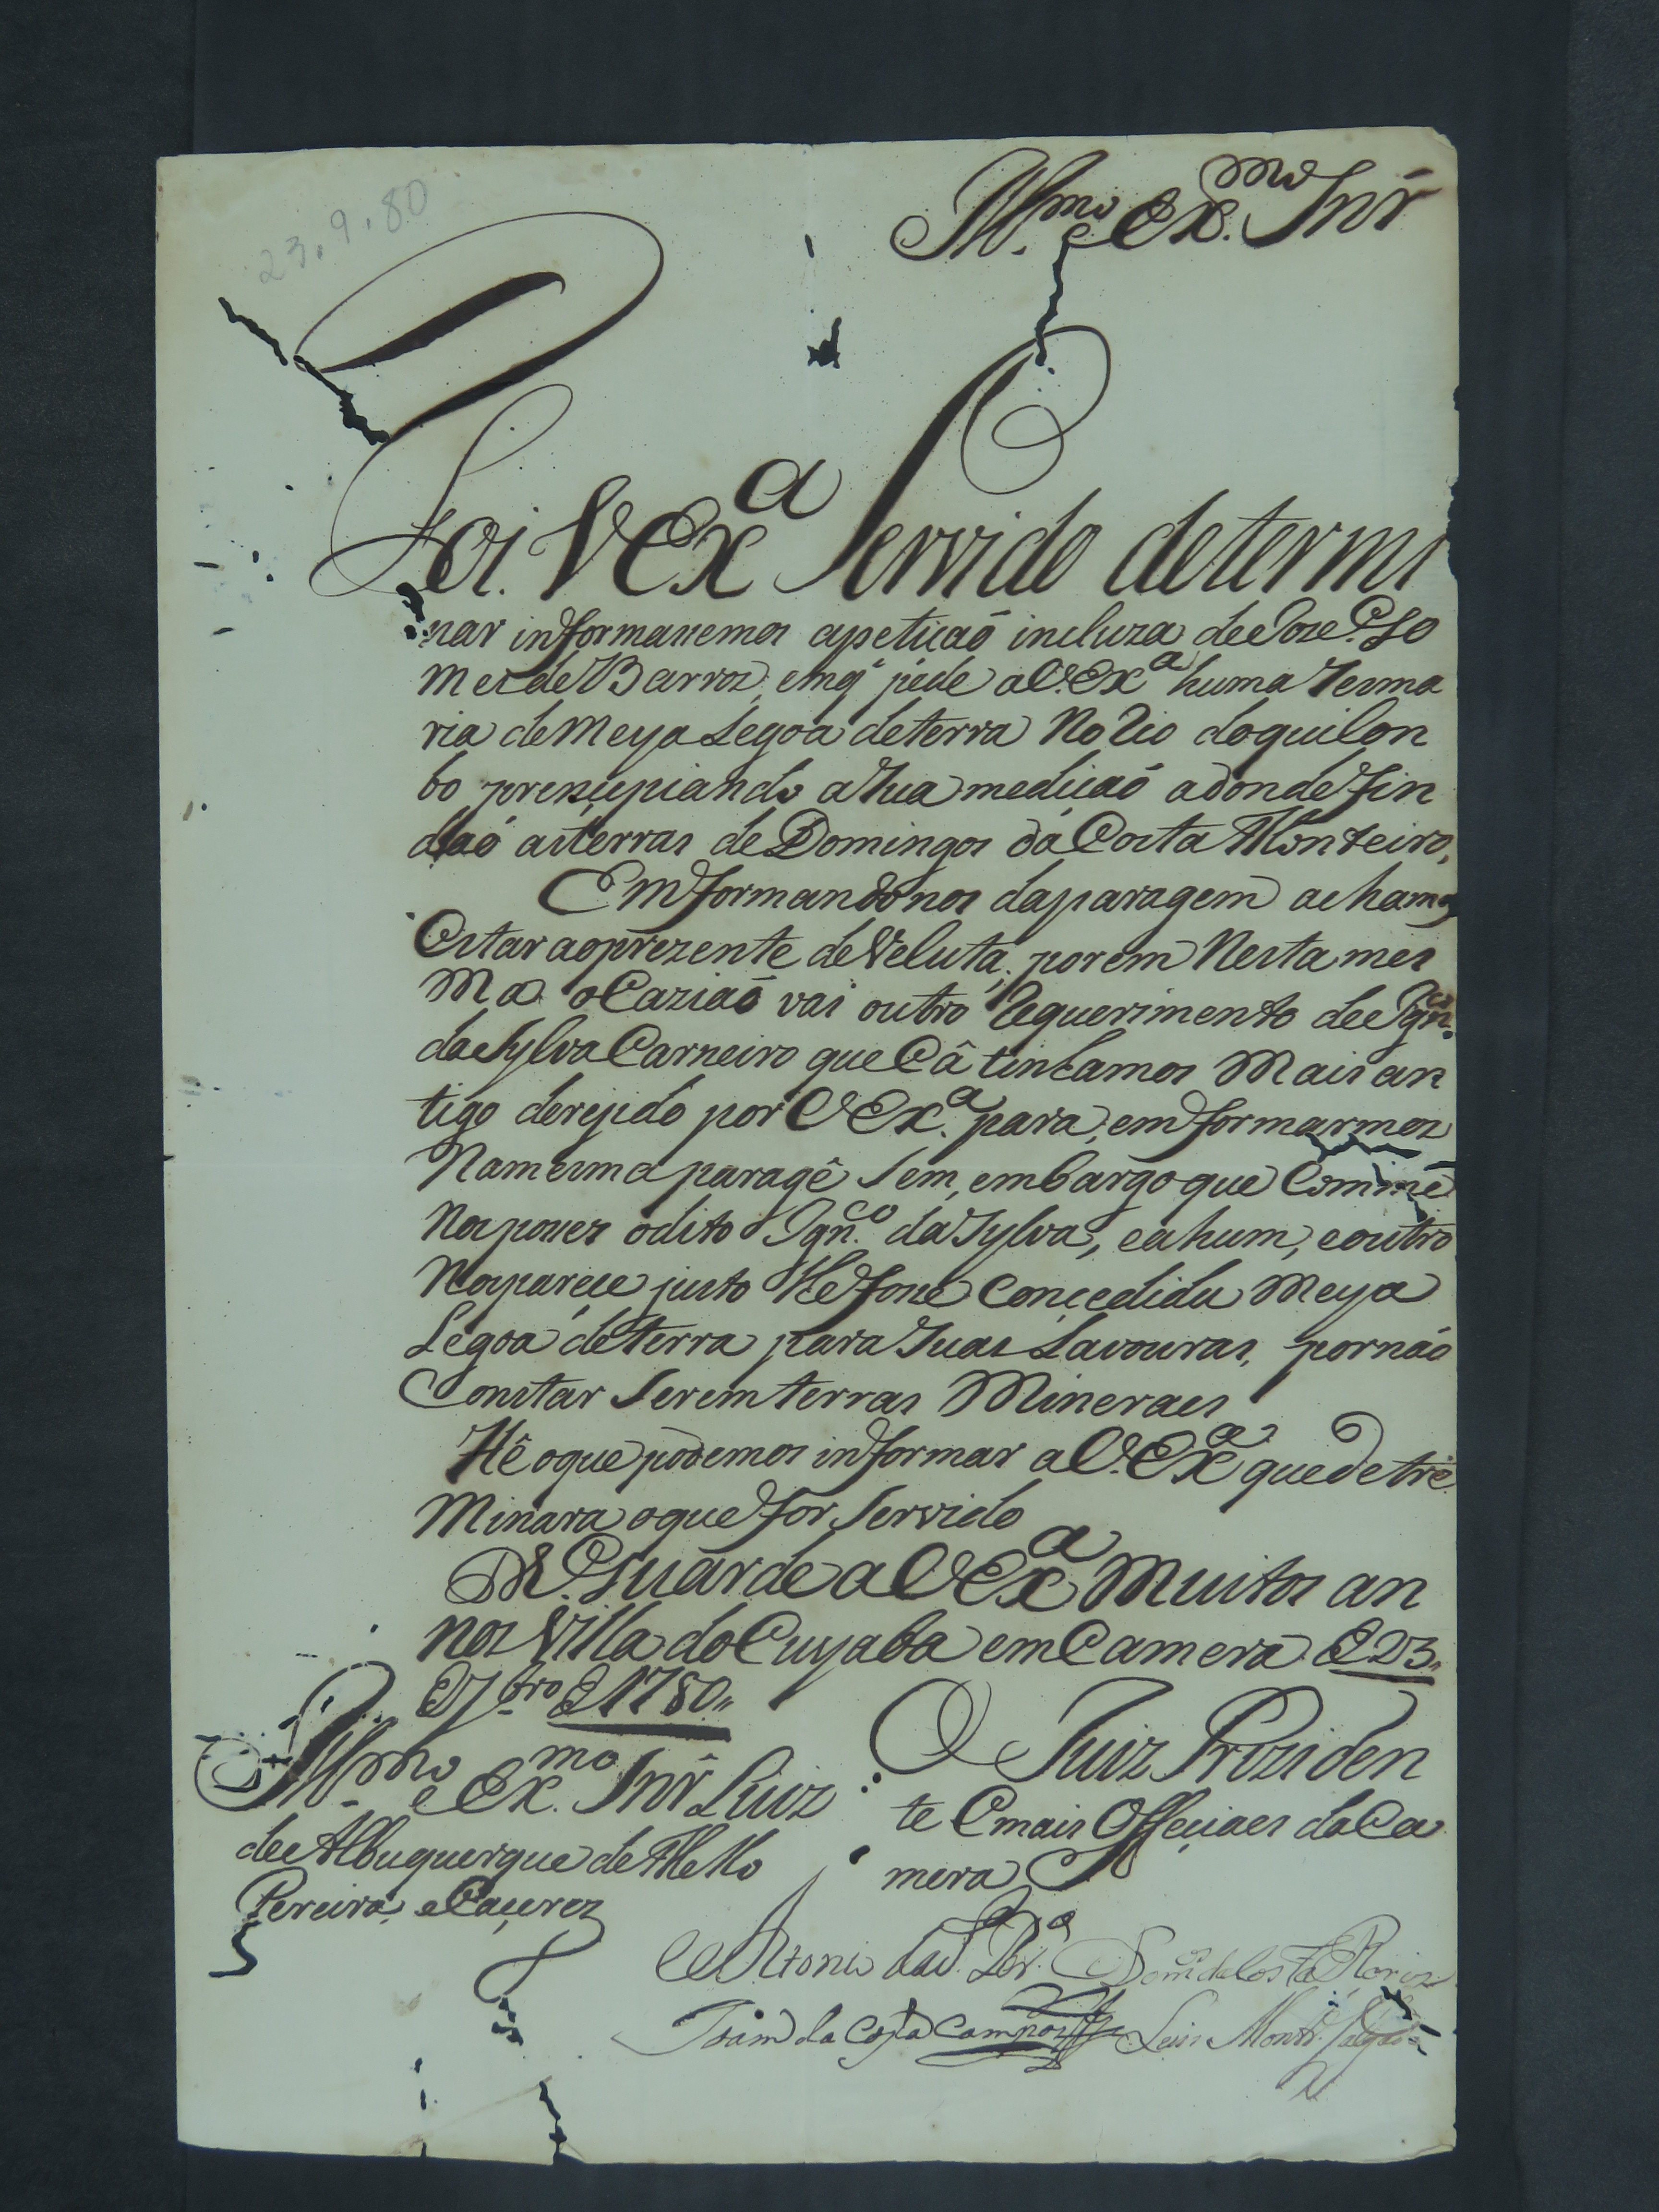 23.9.80
Ill.mo e Ex.mo Snr
Foi V Ex.a Servido determi
nar informassemos apetiçaõ incluza de Joze Go
mes de Barros, emq' pede a V. Ex.a huma Sesma
ria de Meya Legoa de terra No Rio do quilon
bo prensipiando a Sua mediçaõ adonde fin
daõ as terras de Domingos da Costa Monteiro,
Emformandonos da paragem achamos
Estar ao prezente deVeluta, porem Nesta mes
Ma oCaziaõ vai outro Requerimento de Ign.co
da Sylva Carneiro que Câ tinhamos Mais an
tigo derejido por V Ex.a para emformarmos
Na mesma paragê Sem embargo que Commê
Nos posses odito Ign.co da Sylva, e a hum, e outro
Nos parece justo lhe fose Concedidu Meya
Legoa de terra para Suas Lavouras, por naõ
Constar Serem terras Mineraes
Hê oque podemos informar a V. Ex.a que detre
Minara oque for Servido
D.s Guarde a V Ex.a Muitos an
nos Villa do Cuyaba em Camera a 23,,
de 7.bro de 1780,,
Ill.mo e Ex.mo Snr Luiz
de Albuquerque de Mello
Pereira, e Caçerez
O Juiz Preziden
te E mais Offeçiaes da Ca
mera
Antonio da S.a Per.a Dom.os da Costa
Joam da Costa Campos Luis Montr.o